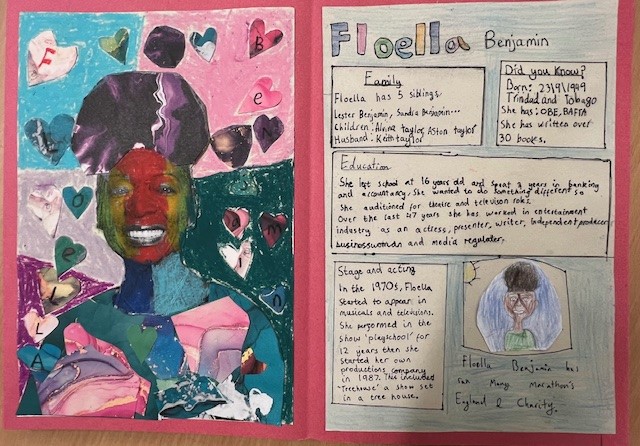 F
B
e
N
l
o
J
e
a
m
L
L
i
A
n
Floella Benjamin
Family
Floella has 5 siblings
Lester Benjamin, Sandra Benjamin...
Children: Alvina taylor, Aston taylor
Husband: Keith taylor
Did you Know?
Born: 23\9\1949
Trinidad and Tobago
She has: OBE, BAFTA
She has written over
30 books.
Education
She left school at 16 years old and spent 3 years in banking
and accountancy. She wanted to do something different so
She auditioned for theatre and televison roles.
Over the last 47 years she has worked in entertainment
industry as an actress, presenter, writer, independent producer
businesswoman and media regulater.
Stage and acting
In the 1970s, Floella
Started to appear in
musicals and televisions.
She performed in the
show 'playschool' for
12 years then she
started her own
productions company
in 1987. This included
'Treehouse' a show set
in a tree house.
Floella Benjamin has
ran Many Marathon's
England & Charity.